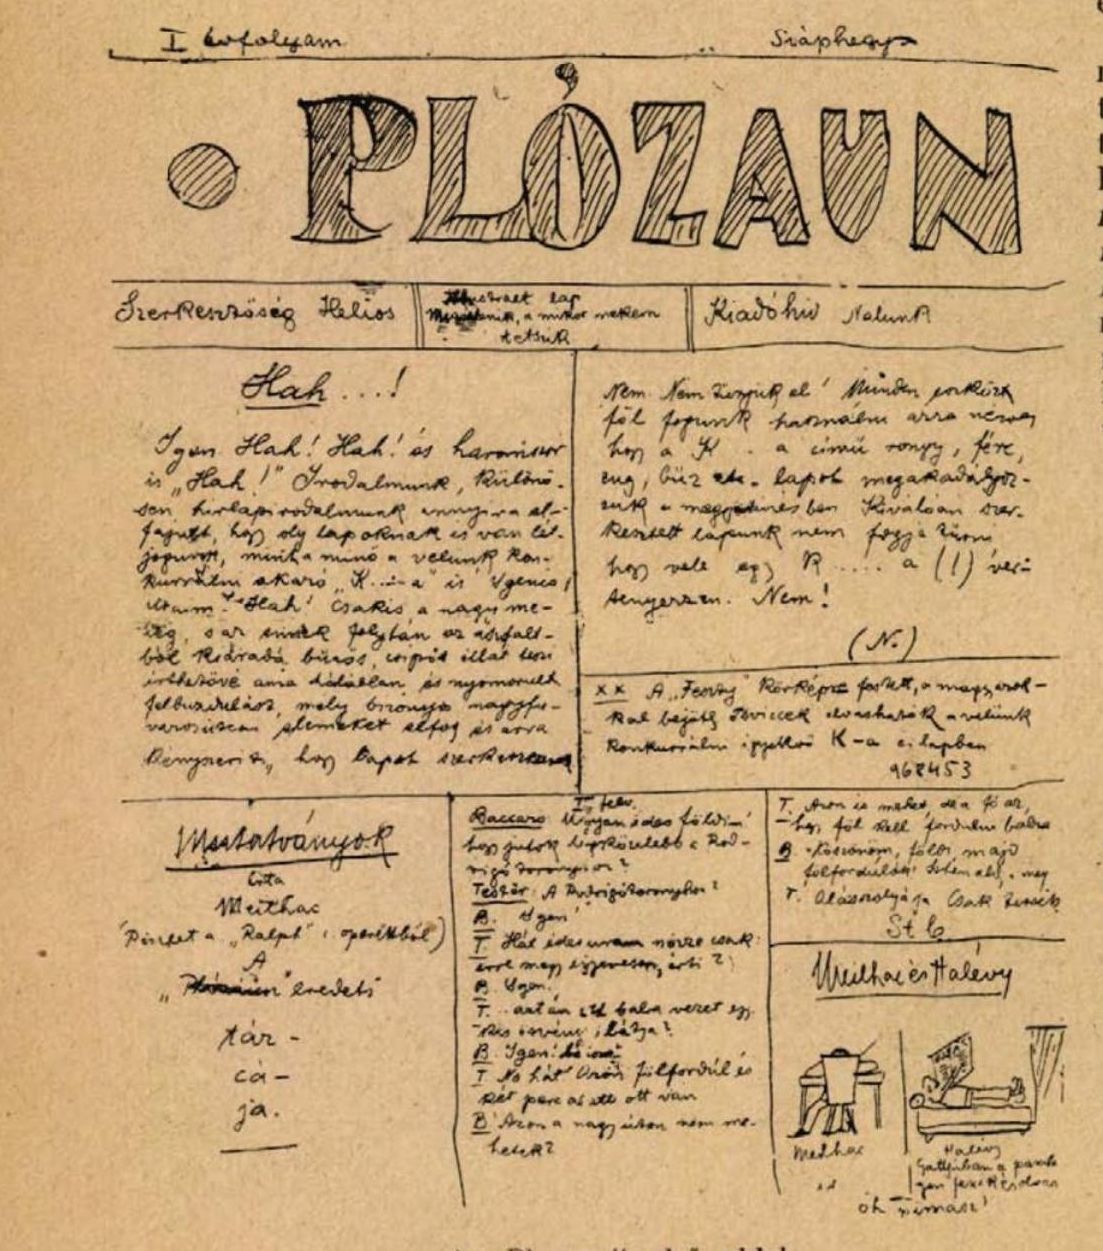 I évfolyam
Sváphegy
PLÓZAUN
Szerkesztőség Helios
lap
a mikor nekem
tetszik
Kiadóhiv Nalunk
Hah...!
Igen Hah! Hah! és háromszor
is „Hah!" Irodalmunk, különö-
sen hirlapirodalmunk annyira el-
fajult, hogy oly lapoknak is van lét-
joguk, mint a minő a velunk kon-
kurrálni akaró „K...a" is Igenis!
Hah! Csakis a nagy me-
leg, s az ennek folytán az aszfalt-
ból kiáradó bűzös, csipős illat teszi
érthetővé ama és nyomorult
felbuzdulást, mely bizonyos nagyfő-
városi elemeket elfog és arra
kényszerit, hogy lapot
Nem. Nem türjük el! Minden eszközt
föl fogunk használni arra nézve,
hogy a K . a című rongy, férc,
zug, bűz etc. lapot megakadályoz-
zuk a Kiválóan szer-
kesztett lapunk nem fogja tűrni
hogy vele egy K..... a (!) ver-
senyezzen. Nem!
(N.)
x x A „Feszty" Körképre festett, a magyarok-
kal bejött olvashatók a velünk
konkurrálni K-a c. lapban
968453
Mutatványok
Irta
Meilhac
(Részlet a „Ralph" c. operettből)
A
„ " eredeti
tár-
cá-
ja.
I felv.
Baccaro Ugyan édes földim!
hogy jutok legközelebb a Rod-
rigó toronyhoz?
Testőr: A Rodrigótoronyhoz?
B. Igen!
T. Hát édes uram nézze csak:
erre megy egyenesen, érti?
B. Igen.
T. aztán itt balra vezet egy
kis ösvény, látja?
B. Igen!
T No hát fölfordúl és
két perc alatt ott van
B Azon a nagy úton nem me-
hetek?
T. Azon is mehet, de a fő az,
hogy föl kell fordulni balra
B. Köszönöm, földi, majd
fölfordulok! Isten
T. Alászolgája Csak
St b
Meilhac és Halévy
Meilhac
Halévy
óh